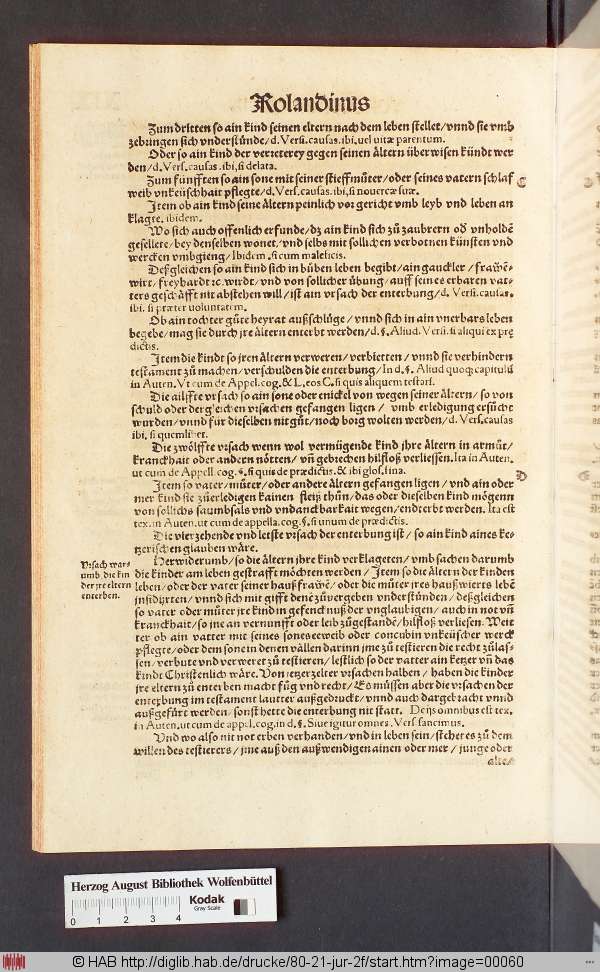 Rolandinus
Zum dritten so ain kind seinen eltern nach dem leben stellet/vnnd sie vmb
zebringen sich vnderstünde/d. Versi. causas. ibi. uel uitæ parentum.
Oder so ain kind der verreterey gegen seinen ältern überwisen kündt wer
den/d. Vers. causas. ibi. si delata.
Zum fünfften so ain sone mit seiner stieffmůter/oder seines vatern schlaf
weib vnkeüschhait pflegte/d. Vers. causas. ibi. si nouercæ suæ.
Item ob ain kind seine ältern peinlich vor gericht vmb leyb vnd leben an
klagte. ibidem.
Wo sich auch offenlich erfunde/dz ain kind sich zů zaubrern oď vnholdē
gesellete/bey denselben wonet/vnd selbs mit sollichen verbotnen künsten vnd
wercken vmbgieng/Ibidem. si cum maleficis.
Deßgleichen so ain kind sich in bůben leben begibt/ain gauckler/frawē-
wirt/freyhardt ꝛc. wirdt/vnd von sollicher übung/auff seines erbaren vat-
ters geschäfft nit abstehen will/ist ain vrsach der enterbung/d. Versi. causas.
ibi. si præter uoluntatem.
Ob ain tochter gůte heyrat außschlüge/vnnd sich in ain vnerbars leben
begebe/mag sie durch jre ältern enterbt werden/d. §. Aliud. Vers. si aliqui ex prę
dictis.
Item die kindt so jren ältern verweren/verbietten/vnnd sie verhindern
testament zů machen/verschulden die enterbung/In d. §. Aliud quoq; capitulū
in Auten. Vt cum de Appel. cog. & L. eos C. si quis aliquem testari.
Die ailffte vrsach so ain sone oder enickel von wegen seiner ältern/so von
schuld oder dergleichen vrsachen gefangen ligen/vmb erledigung ersůcht
wurden/vnnd für dieselben nit gůt/noch borg wolten werden/d. Vers. causas
ibi. si quemlibet.
Die zwölffte vrsach wenn wol vermügende kind jhre ältern in armůt/
kranckhait oder andern nötten/vñ gebrechen hilfloß verliessen. Ita in Auten.
ut cum de Appell. cog. §. si quis de prædictis. & ibi glos. fina.
Item so vater/můter/oder andere ältern gefangen ligen/vnd ain oder
mer kind sie zůerledigen kainen fleiß thůn/das oder dieselben kind mögenn
von sollichs saumbsals vnd vndanckbarkait wegen/endterbt werden. Ita est
tex. in Auten. ut cum de appella. cog. §. si unum de prædictis.
Die vierzehende vnd letste vrsach der enterbung ist/so ain kind aines ke-
tzerischen glauben wäre.
Vrsach war-
umb die kin
der jre eltern
enterben.
Herwiderumb/so die ältern jhre kind verklageten/vmb sachen darumb
die kinder am leben gestrafft möchten werden/Item so die ältern der kinden
leben/oder der vater seiner haußfrawē/oder die můter jres haußwirts lebē
insidijrten/vnnd sich mit gifft denē zůvergeben vnderstünden/deßgleichen
so vater oder můter jre kind in gefencknuß der vnglaubigen/auch in not vñ
kranckhait/so jne an vernunfft oder leib zůgestandē/hilfloß verliesen. Weit
ter ob ain vatter mit seines sones eeweib oder concubin vnkeüscher werck
pflegte/oder dem sone in denen vällen darinn jme zů testieren die recht zůlas-
sen/verbute vnd verweret zů testieren/lestlich so der vatter ain ketzer vñ das
kindt Christenlich wäre. Von yetzerzelter vrsachen halben/haben die kinder
jre eltern zů enterben macht fůg vnd recht/Es müssen aber die vrsachen der
enterbung im testament lautter außgedruckt/vnnd auch dargebracht vnnd
außgefürt werden/sonst hette die enterbung nit statt. De ijs omnibus est tex.
in Auten. ut cum de appel. cog. in d. §. Siue igitur omnes. Vers. sancimus.
Vnd wo also nit not erben verhanden/vnd in leben sein/stehet es zů dem
willen des testierers/jme auß den außwendigen ainen oder mer/junge oder
alte/
Herzog August Bibliothek Wolfenbüttel
Kodak
Gray Scale
0 1 2 3 4
© HAB http://diglib.hab.de/drucke/80-21-jur-2f/start.htm?image=00060